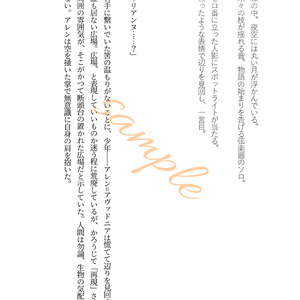 の中。夜空には丸い月が浮かんでいる。
々の枝が揺れる音。物語の始まりを告げる弦楽器のソロ。
ロ番に立った人影にスポットライトが当たる。
ったような表情で辺りを見回し、一言目。
リアンヌ……？」
手に繋いでいた筈の温もりがな
ことに、少年――アレン＝アヴァドニアは慌てて辺りを見回
も居ない広場。広場、と表現していいものか迷う程に荒廃しているが、かろうじて「再現」さ
囲の雰囲気が、そこがかつて断頭台の置かれた広場だと示していた。人間は勿論、生物の気配
。アレンは空を掻いた掌で無意識に自身の肩を抱いた。
Sample